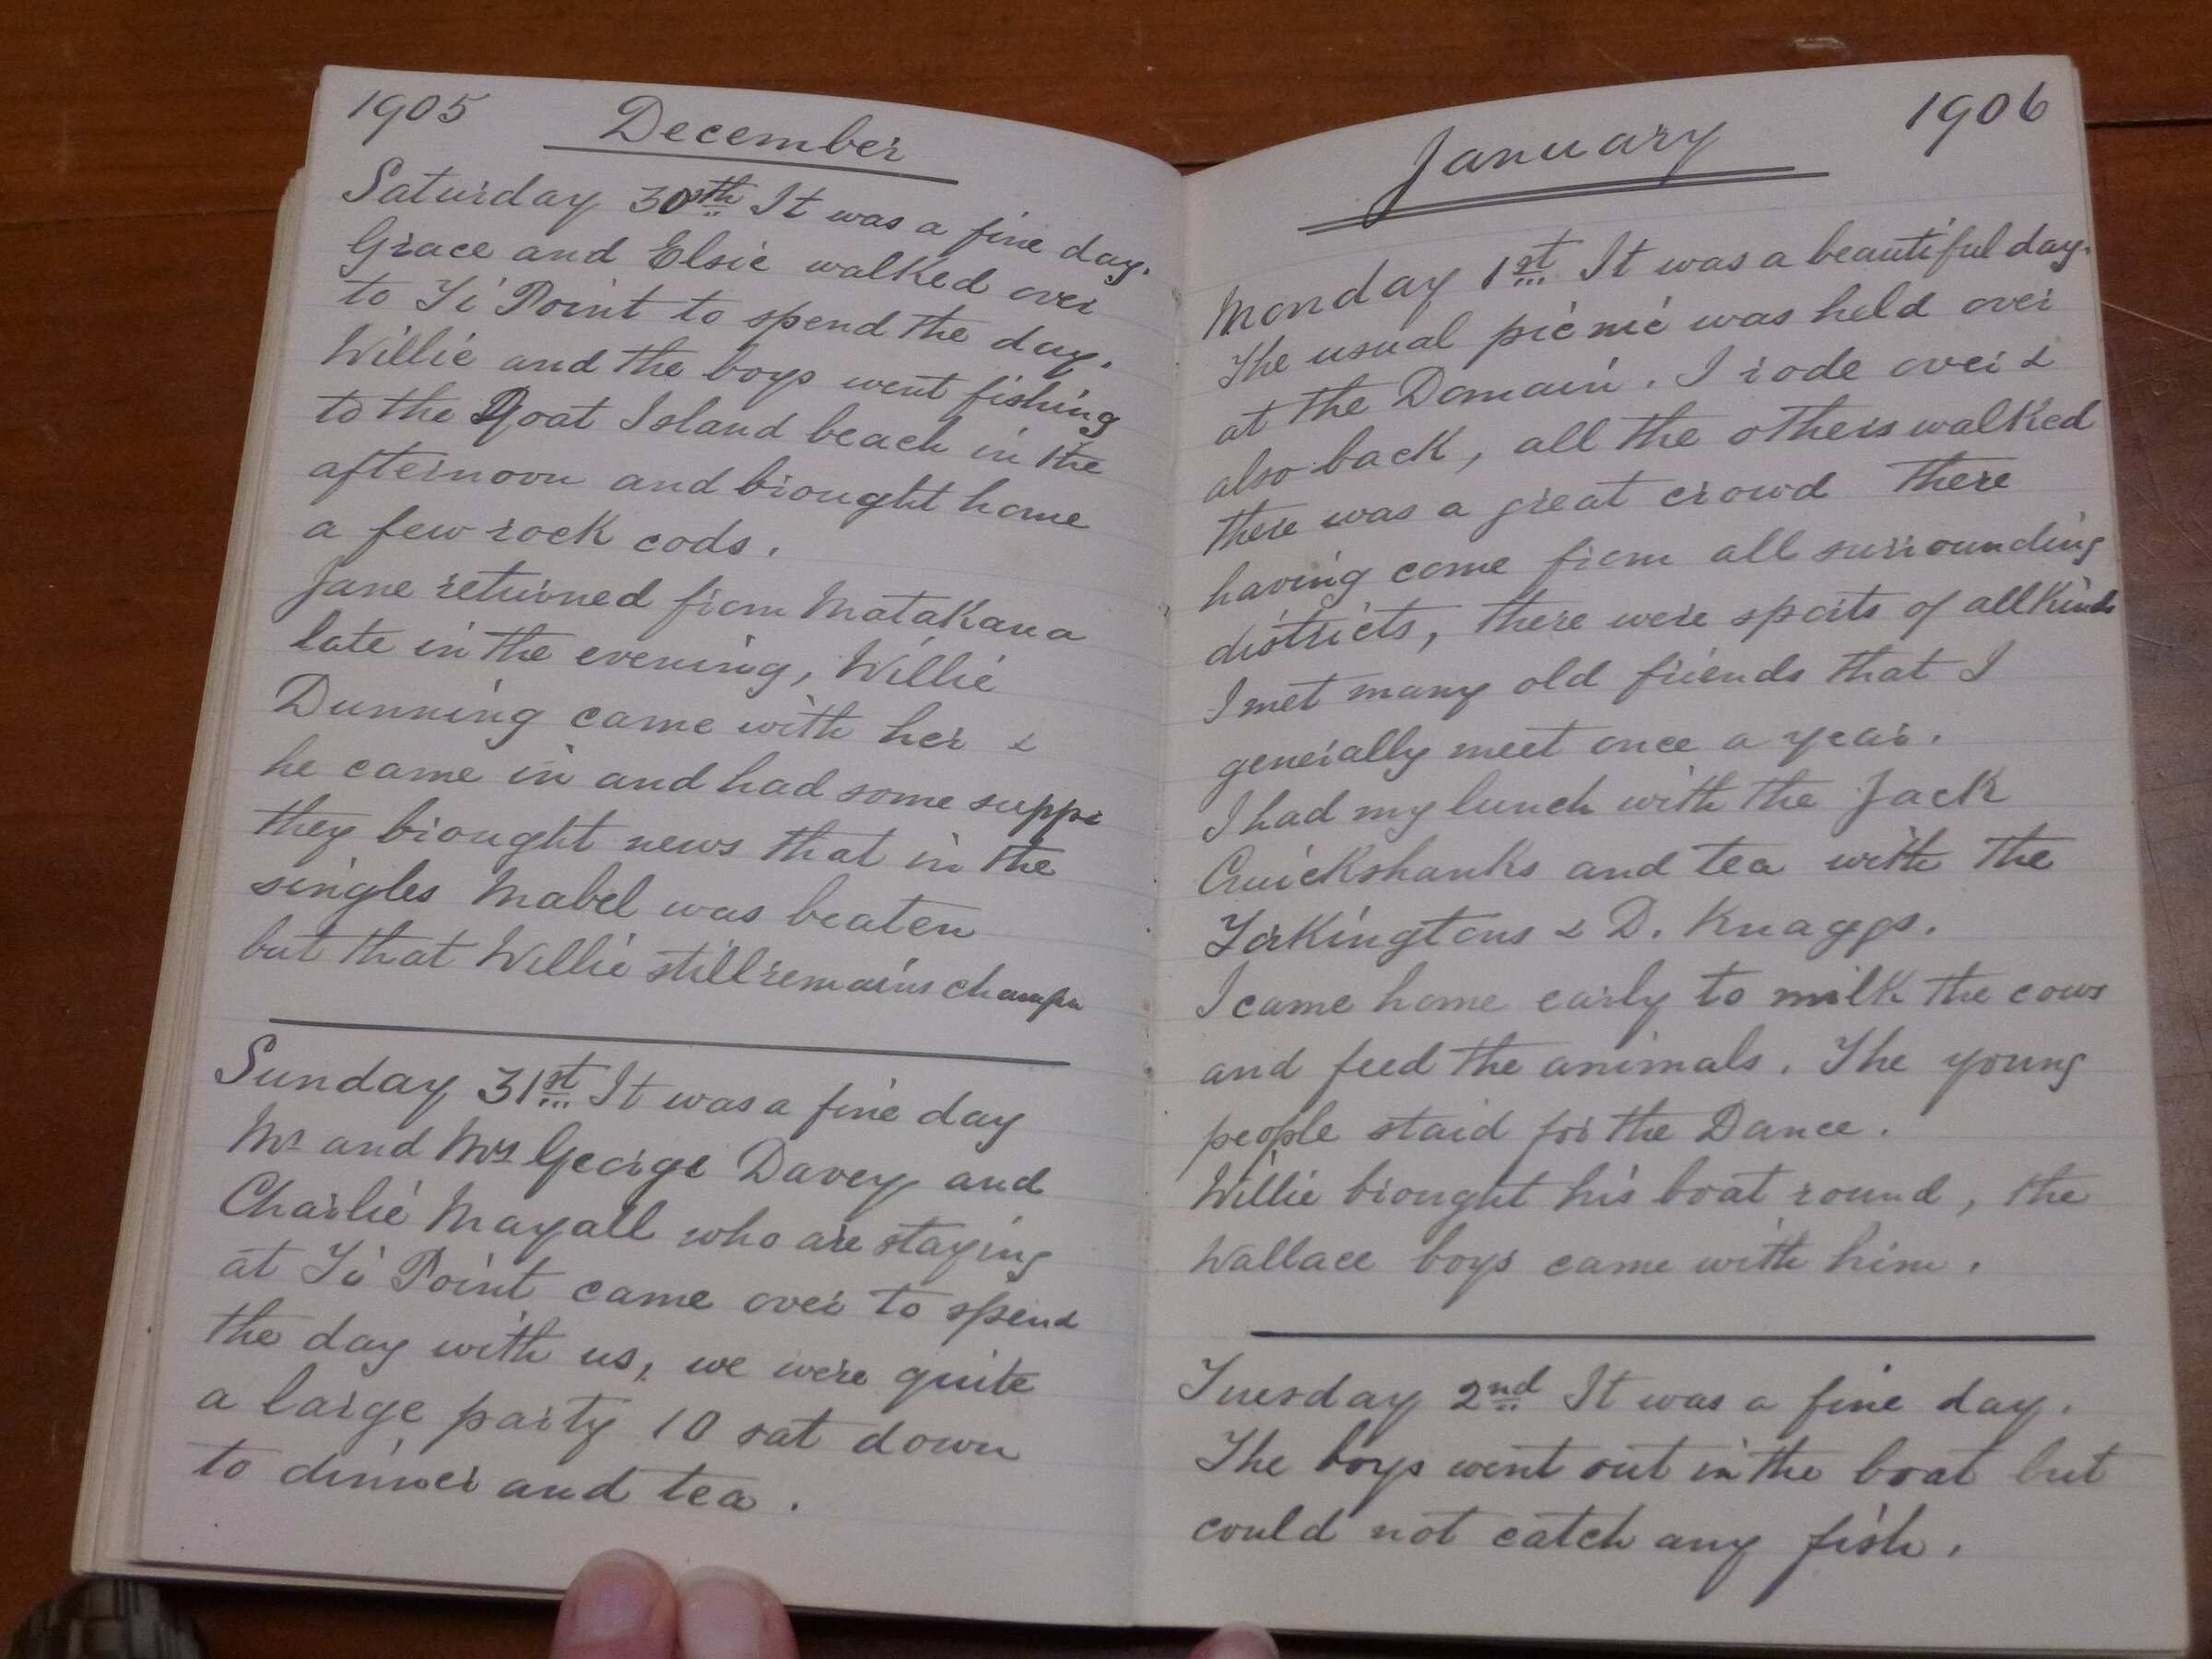 1905 December
Saturday 30th It was a fine day.
Grace and Elsie walked over
to Ti Point to spend the day.
Willie and the boys went fishing
to the Goat Island beach in the
afternoon and brought home
a few rock cods.
Jane returned from Matakana
late in the evening, Willie
Dunning came with her &
he came in and had some suppr
they brought news that in the
singles Mabel was beaten
but that Willie still remains champn
Sunday 31st It was a fine day
Mr and Mrs George Davey and
Charlie Mayall who are staying
at Ti Point came over to spend
the day with us, we were quite
a large party 10 sat down
to dinner and tea.
January 1906
Monday 1st It was a beautiful day.
The usual picnic was held over
at the Domain. I rode over &
also back, all the others walked
there was a great crowd there
having come from all surrounding
districts, there were sports of all kinds
I met many old friends that I
generally meet once a year.
I had my lunch with the Jack
Cruickshanks and tea with the
Torkingtons & D. Knaggs.
I came home early to milk the cows
and feed the animals. The young
people staid for the Dance.
Willie brought his boat round, the
Wallace boys came with him.
Tuesday 2nd It was a fine day.
The boys went out in the boat but
could not catch any fish.